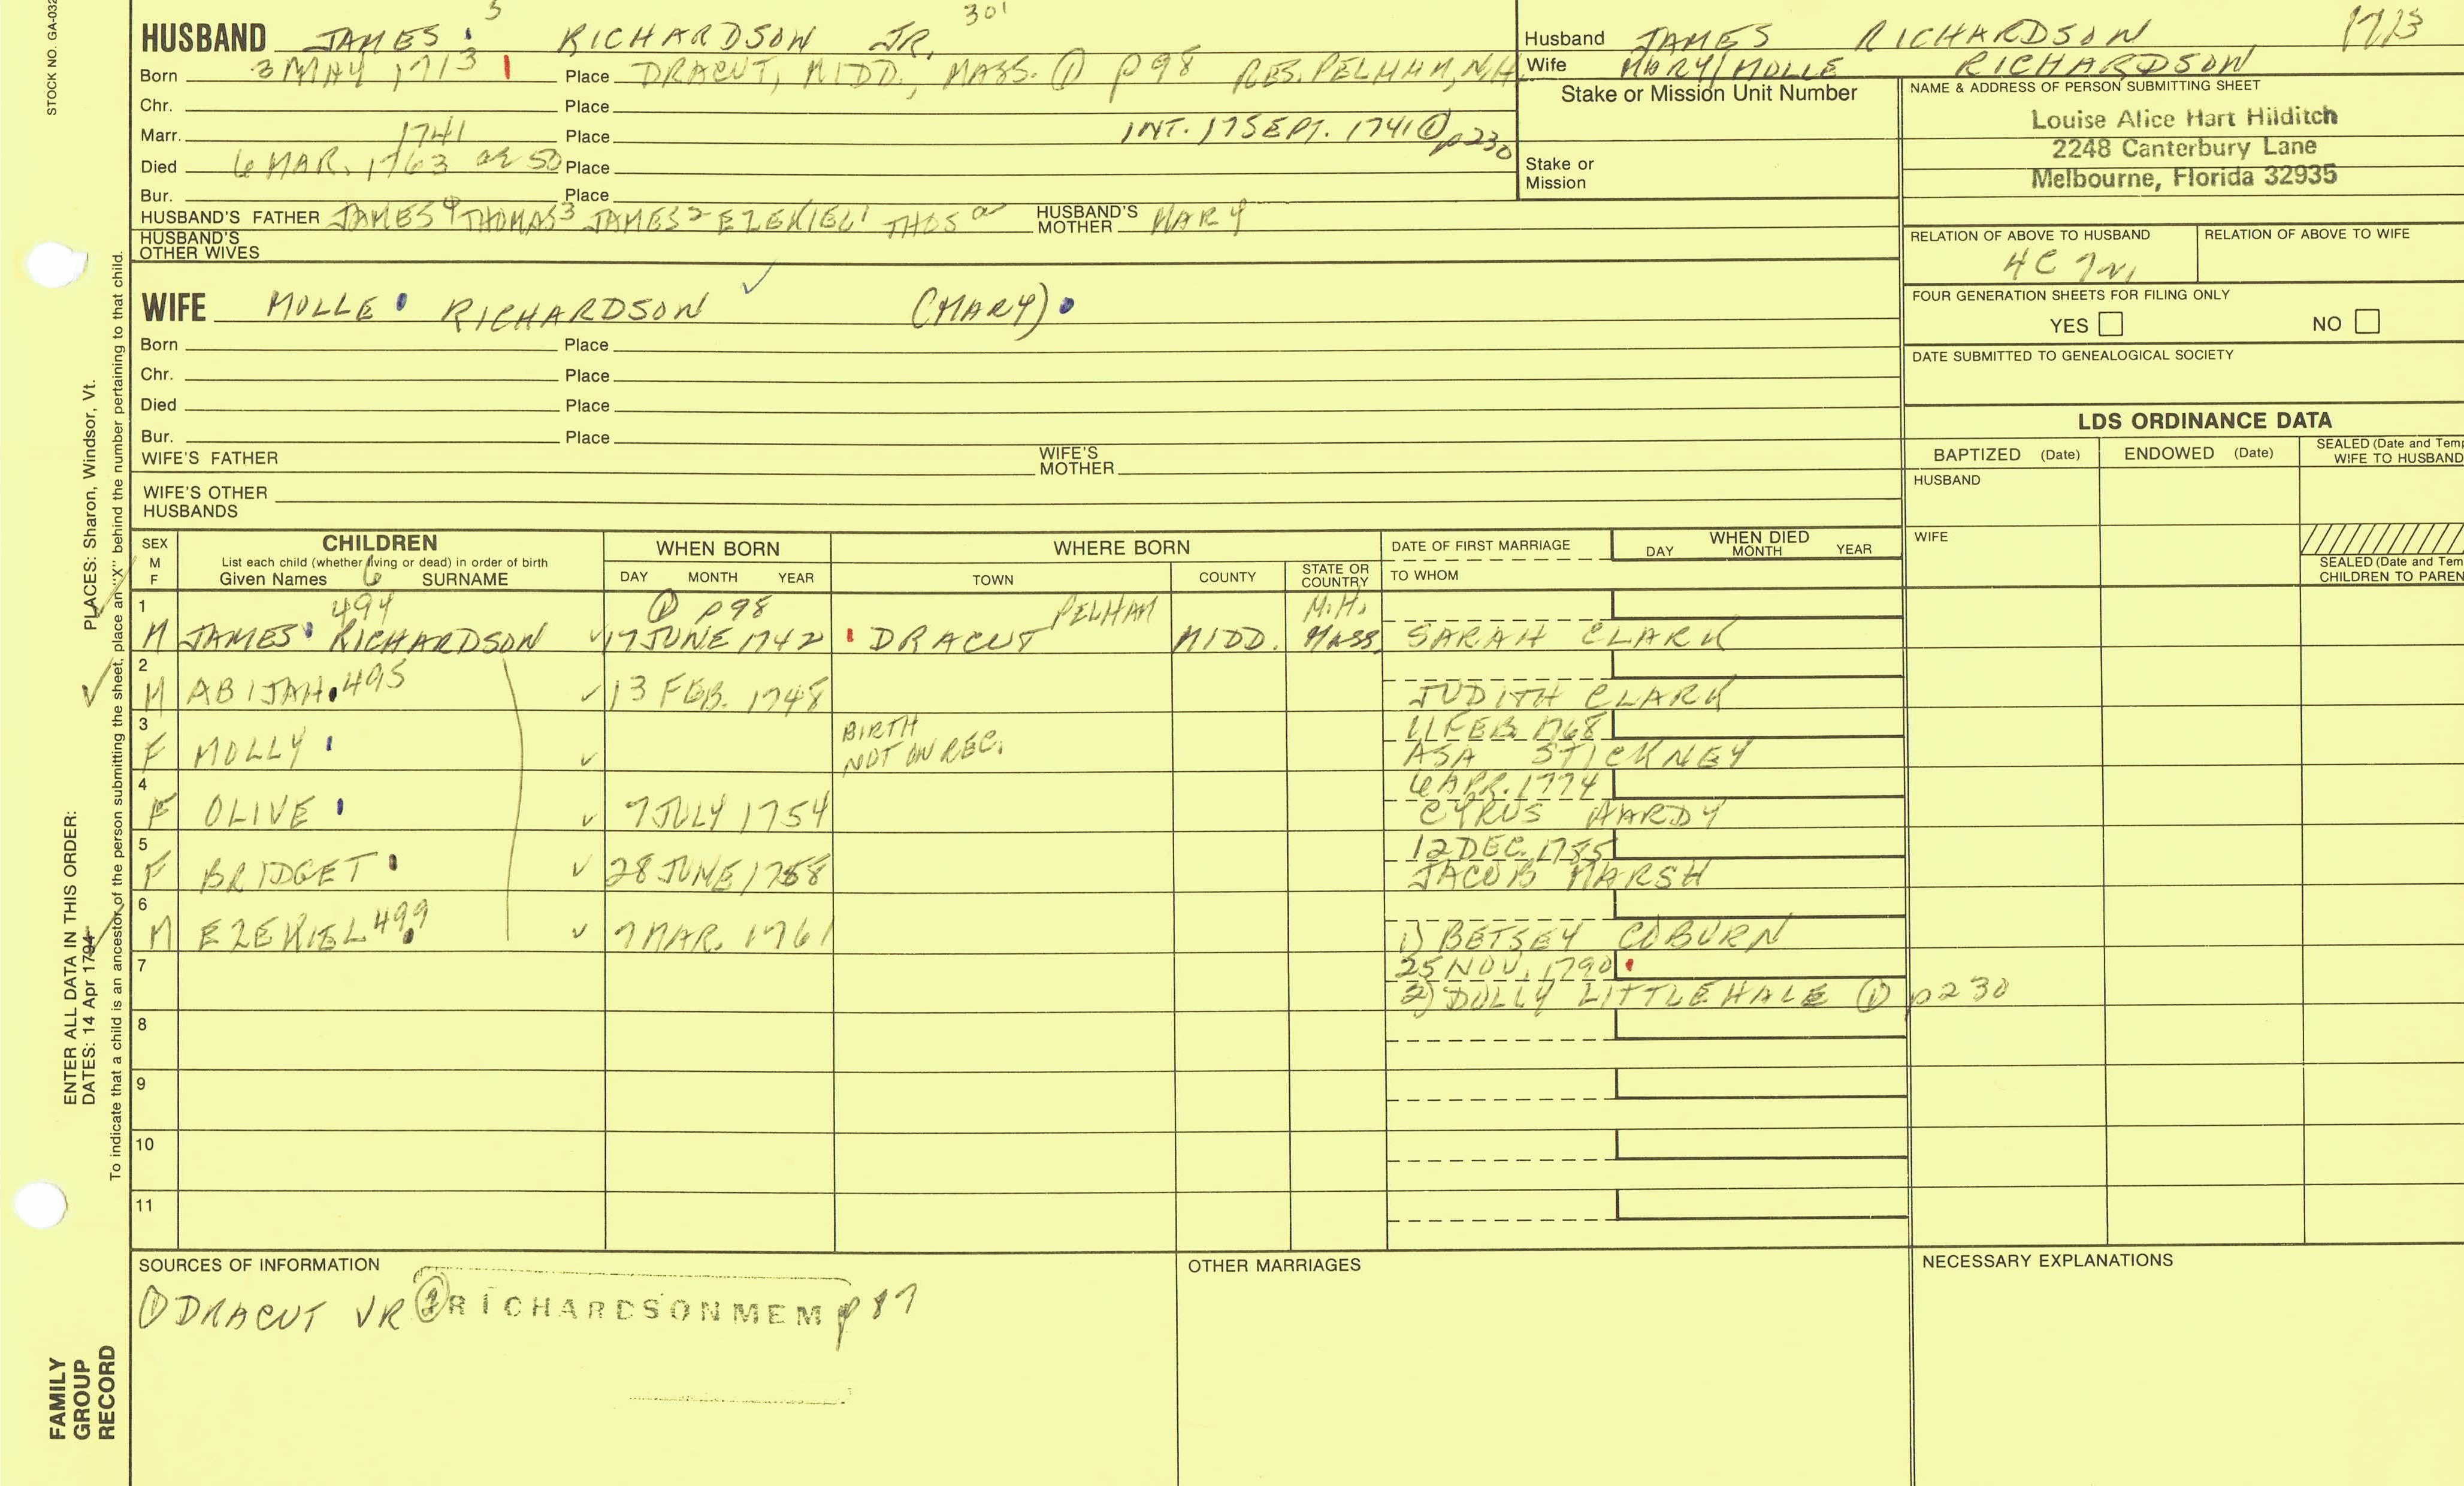 STOCK NO. GA-032
5 301
HUSBAND JAMES RICHARDSON JR.
Born 3 MAY 1713 Place DRACUT, MIDD., MASS. ① p98 RES. PELHAM, N.H.
Chr. Place
Marr. 1741 Place INT. 17 SEPT. 1741 ① p230
Died 6 MAR. 1763 ae 50 Place
Bur. Place
HUSBAND'S FATHER JAMES4 THOMAS3 JAMES2 EZEKIEL1 THOS a HUSBAND'S MOTHER MARY
HUSBAND'S OTHER WIVES
WIFE MOLLE RICHARDSON ✓ (MARY)
Born Place
Chr. Place
Died Place
Bur. Place
WIFE'S FATHER WIFE'S MOTHER
WIFE'S OTHER HUSBANDS
Husband JAMES RICHARDSON 1713
Wife MARY/MOLLE RICHARDSON
Stake or Mission Unit Number
Stake or Mission
NAME & ADDRESS OF PERSON SUBMITTING SHEET
Louise Alice Hart Hilditch
2248 Canterbury Lane
Melbourne, Florida 32935
RELATION OF ABOVE TO HUSBAND RELATION OF ABOVE TO WIFE
4C 7r.
FOUR GENERATION SHEETS FOR FILING ONLY
YES NO
DATE SUBMITTED TO GENEALOGICAL SOCIETY
LDS ORDINANCE DATA
BAPTIZED (Date) ENDOWED (Date) SEALED (Date and Temp WIFE TO HUSBAND
HUSBAND
WIFE
SEALED (Date and Tem CHILDREN TO PAREN
SEX M F
CHILDREN
List each child (whether living or dead) in order of birth
Given Names 6 SURNAME
WHEN BORN
DAY MONTH YEAR
WHERE BORN
TOWN COUNTY STATE OR COUNTRY
DATE OF FIRST MARRIAGE
TO WHOM
WHEN DIED
DAY MONTH YEAR
1 494 ① p98 PELHAM N.H.
M JAMES RICHARDSON ✓ 17 JUNE 1742 DRACUT MIDD. MASS. SARAH CLARK
2
M ABIJAH 495 ✓ 13 FEB. 1748 JUDITH CLARK
3 BIRTH 11 FEB. 1768
F MOLLY ✓ NOT ON REC. ASA STICKNEY
4 6 APR. 1774
F OLIVE ✓ 7 JULY 1754 CYRUS HARDY
5 12 DEC. 1785
F BRIDGET ✓ 28 JUNE 1758 JACOB MARSH
6
M EZEKIEL 499 ✓ 7 MAR. 1761 1) BETSEY COBURN
7 25 NOV. 1790
2) DOLLY LITTLEHALE ① p230
8
9
10
11
SOURCES OF INFORMATION
① DRACUT VR ② RICHARDSON MEM p 87
OTHER MARRIAGES
NECESSARY EXPLANATIONS
ENTER ALL DATA IN THIS ORDER:
DATES: 14 Apr 1794
PLACES: Sharon, Windsor, Vt.
To indicate that a child is an ancestor of the person submitting the sheet, place an "X" behind the number pertaining to that child.
FAMILY
GROUP
RECORD